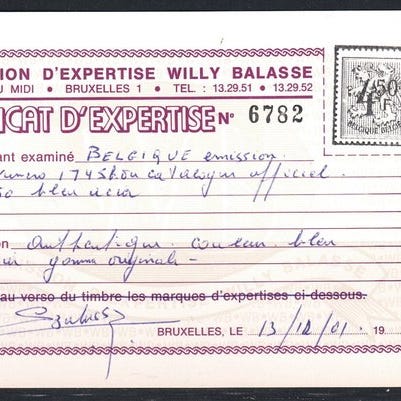 ION D'EXPERTISE WILLY BALASSE
U MIDI • BRUXELLES 1 • TEL. : 13.29.51 • 13.29.52
ICAT D'EXPERTISE N° 6782
4,50 F
BELGIQUE BELGIE
ant examiné BELGIQUE émission
numéro 1745 du catalogue officiel
50 bleu acier
on authentique. couleur bleu
gomme originale -
au verso du timbre les marques d'expertises ci-dessous.
BRUXELLES, LE 13/12/01. 19